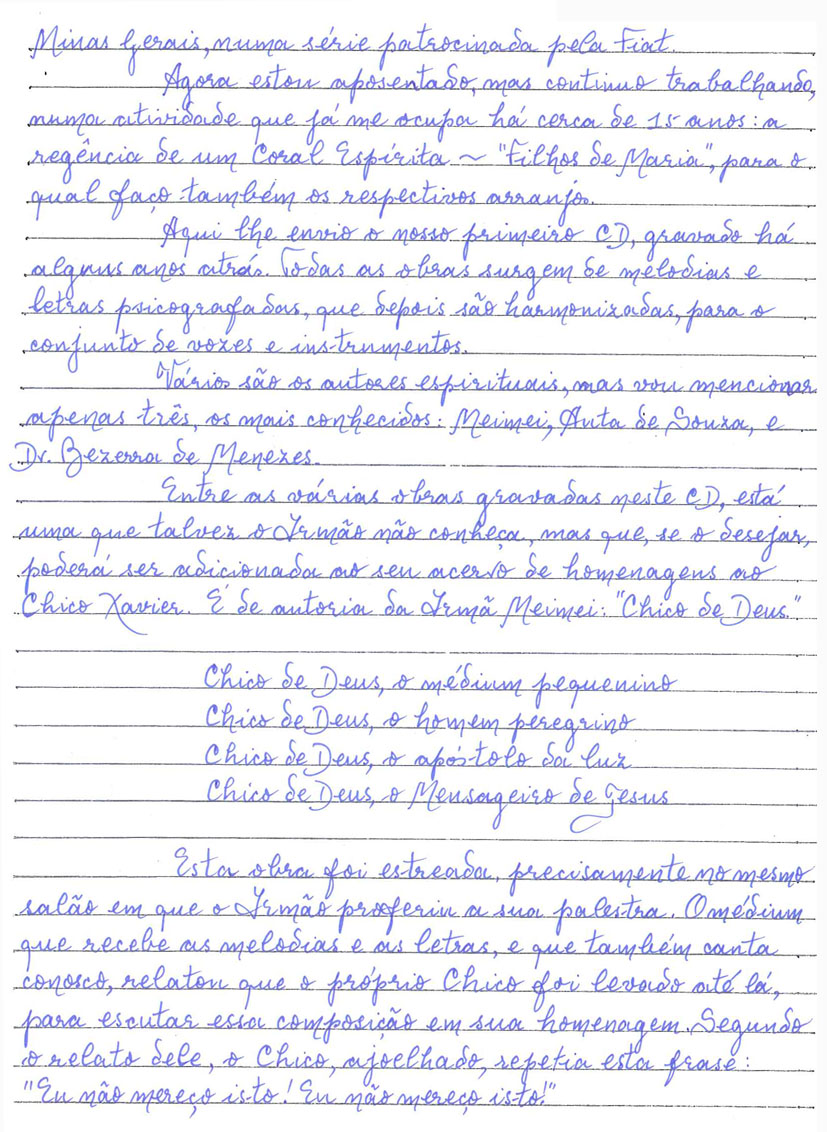 Minas Gerais, numa série patrocinada pela Fiat.
Agora estou aposentado, mas continuo trabalhando,
numa atividade que já me ocupa há cerca de 15 anos: a
regência de um Coral Espírita ~ "Filhos de Maria", para o
qual faço também os respectivos arranjos.
Aqui lhe envio o nosso primeiro CD, gravado há
alguns anos atrás. Todas as obras surgem de melodias e
letras psicografadas, que depois são harmonizadas, para o
conjunto de vozes e instrumentos.
Vários são os autores espirituais, mas vou mencionar
apenas três, os mais conhecidos: Meimei, Auta de Souza, e
Dr. Bezerra de Menezes.
Entre as várias obras gravadas neste CD, está
uma que talvez o Irmão não conheça, mas que, se o desejar,
poderá ser adicionada ao seu acervo de homenagens ao
Chico Xavier. É de autoria da Irmã Meimei: "Chico de Deus."
Chico de Deus, o médium pequenino
Chico de Deus, o homem peregrino
Chico de Deus, o apóstolo da luz
Chico de Deus, o Mensageiro de Jesus
Esta obra foi estreada, precisamente no mesmo
salão em que o Irmão proferiu a sua palestra. O médium
que recebe as melodias e as letras, e que também canta
conosco, relatou que o próprio Chico foi levado até lá,
para escutar essa composição em sua homenagem. Segundo
o relato dele, o Chico, ajoelhado, repetia esta frase:
"Eu não mereço isto! Eu não mereço isto!"